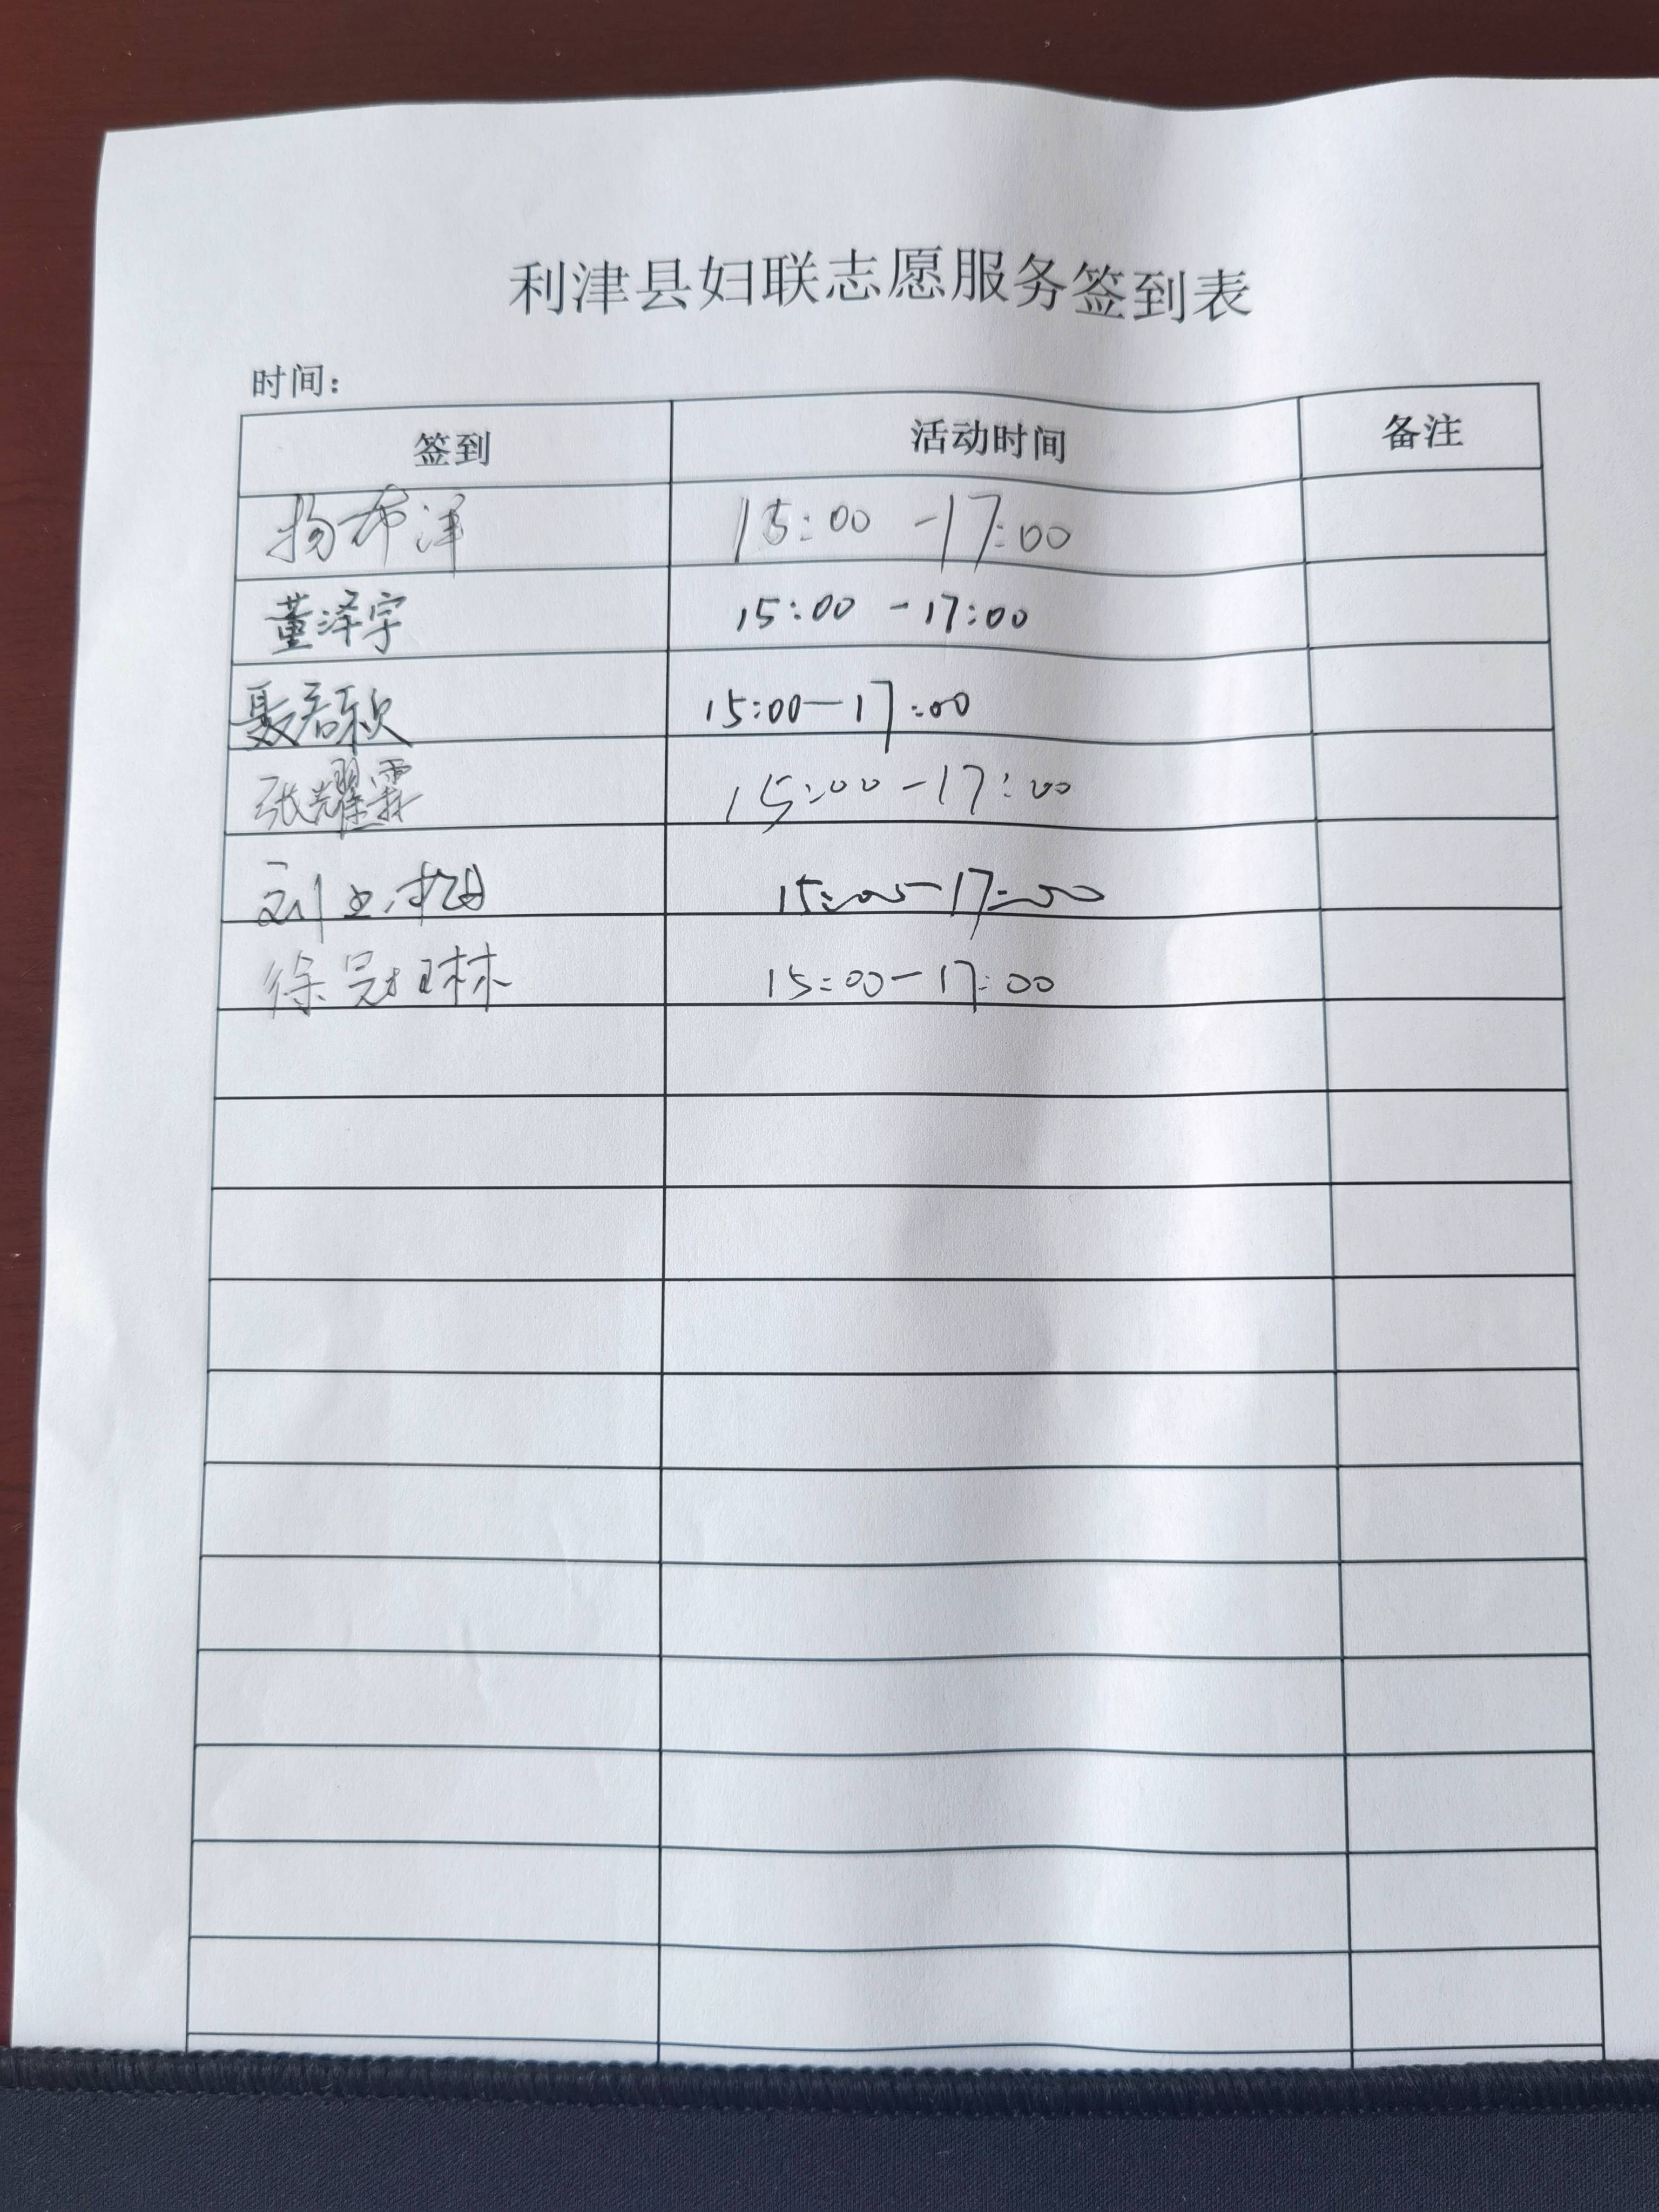 利津县妇联志愿服务签到表
时间：
签到 活动时间 备注
杨布洋 15:00 -17:00
董泽宇 15:00 -17:00
聂君秋 15:00-17:00
张耀霖 15:00-17:00
刘 15:00-17:00
徐冠琳 15:00-17:00